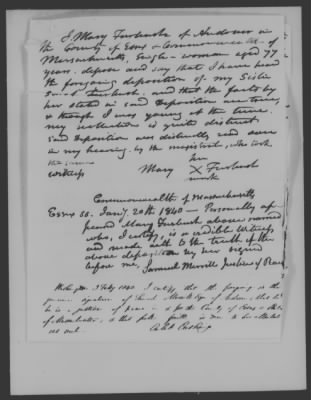 I Mary Furbush of Andover in
the County of Essex & Commonwealth of
Massachusetts, Single-woman aged 77
years, depose and say that I have heard
the foregoing deposition of my Sister
Furbush, and that the facts by
her stated in said deposition are true,
& though I was young at the time
my recollection is quite distinct.
Said deposition was distinctly read over
in my hearing by the magistrate, who took
the same her
witness Mary X Furbush
mark
Commonwealth of Massachusetts
Essex ss. Jany. 20th 1840 – Personally ap-
peared Mary Furbush above named
who, I certify, is a credible witness,
and made oath to the truth of the
above deposition by her signed
before me, Samuel Merrill Justice of Peace
Washington 3 Feby 1840 I certify that the foregoing is the
genuine signature of Samuel Merrill Esqr of Andover, that he
is a justice of peace in & for the County of Essex & State
of Massachusetts, & that full faith is due to his attestations
as such. Cushing